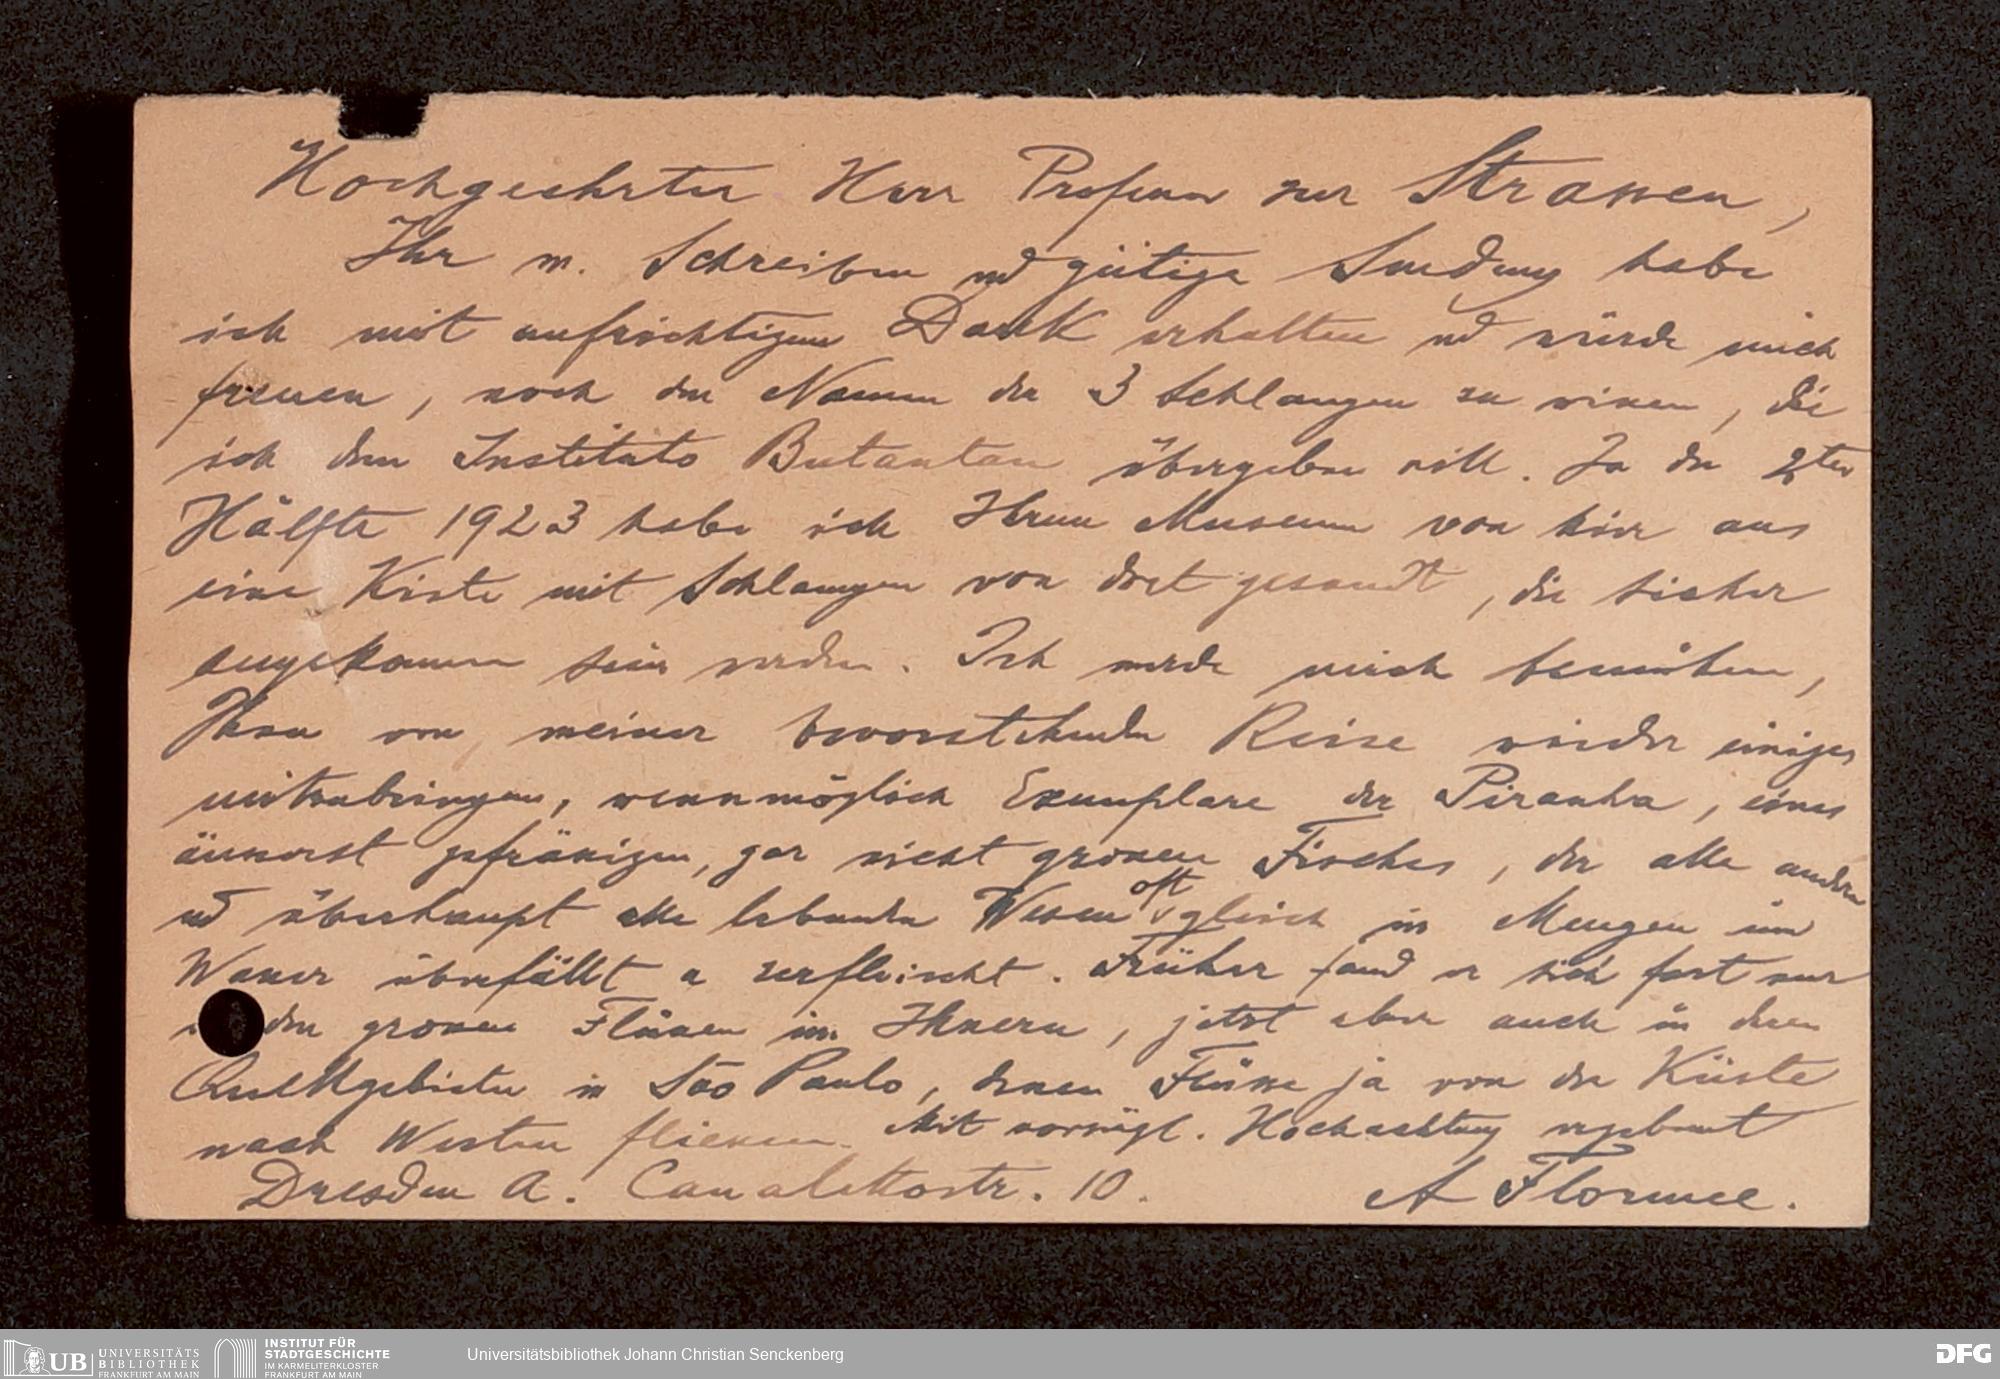 Hochgeehrter Herr Professor zur Strassen,
Ihr w. Schreiben und gütige Sendung habe
ich mit aufrichtigem Dank erhalten und würde mich
freuen, noch den Namen der 3 Schlangen zu wissen, die
ich dem Instituto Butantan übergeben will. In der 2ten
Hälfte 1923 habe ich Ihrem Museum von hier aus
eine Kiste mit Schlangen von dort gesandt, die sicher
angekommen sein werden. Ich werde mich bemühen,
Ihnen von meiner bevorstehenden Reise wieder einiges
mitzubringen, wennmöglich Exemplare der Piranha, eines
äusserst gefrässigen, gar nicht grossen Fisches, der alle andern
und überhaupt alle lebenden Wesen oft gleich in Mengen im
Wasser überfällt u zerfleischt. Früher fand er sich fast nur
den grossen Flüssen im Innern, jetzt aber auch in deren
Quellgebieten in São Paulo, dessen Flüsse ja von der Küste
nach Westen fliessen. Mit vorzügl. Hochachtung ergebenst
Dresden A. Canalettostr. 10. A Florence.
UB UNIVERSITÄTS BIBLIOTHEK FRANKFURT AM MAIN
INSTITUT FÜR STADTGESCHICHTE IM KARMELITERKLOSTER FRANKFURT AM MAIN
Universitätsbibliothek Johann Christian Senckenberg
DFG